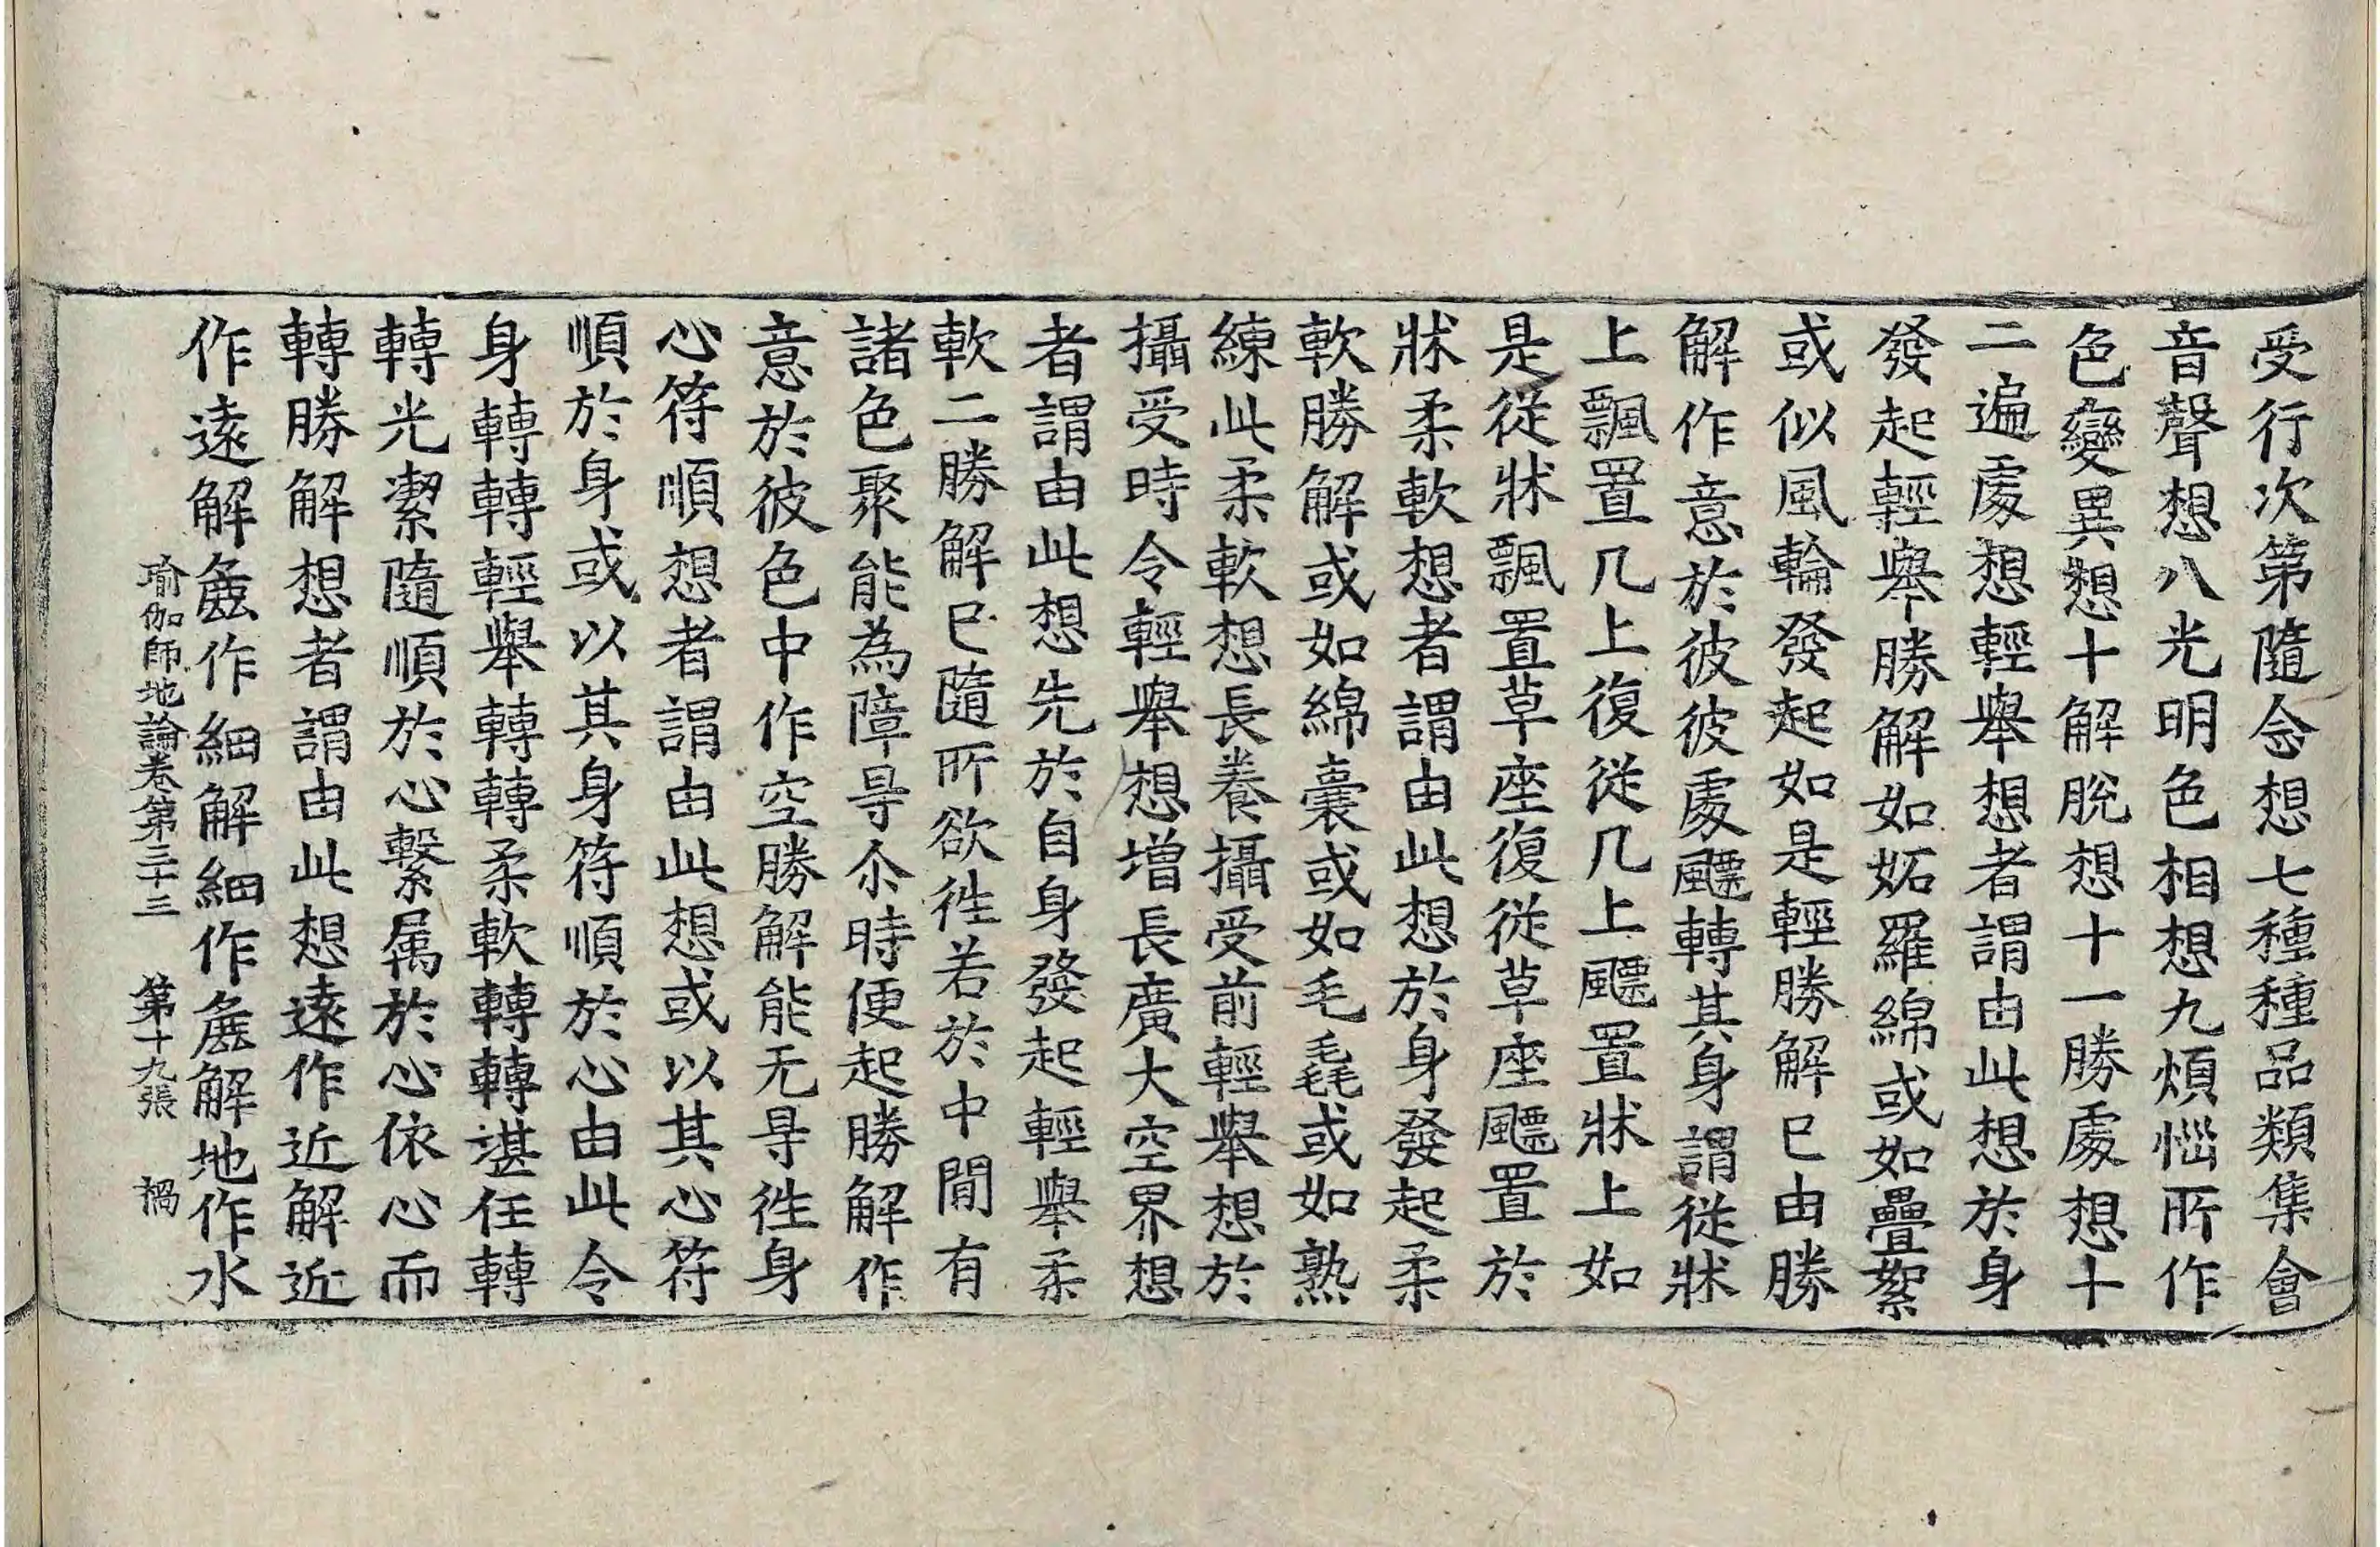 受行次第隨念想七種種品類集會
音聲想八光明色相想九煩惱所作
色變異想十解脫想十一勝處想十
二遍處想輕舉想者謂由此想於身
發起輕舉勝解如妬羅綿或如疊絮
或似風輪發起如是輕勝解已由勝
解作意於彼彼處飄轉其身謂從牀
上飄置几上復從几上飄置牀上如
是從牀飄置草座復從草座飄置於
牀柔軟想者謂由此想於身發起柔
軟勝解或如綿囊或如毛毳或如熟
練此柔軟想長養攝受前輕舉想於
攝受時令輕舉想增長廣大空界想
者謂由此想先於自身發起輕舉柔
軟二勝解已隨所欲往若於中間有
諸色聚能為障㝵尒時便起勝解作
意於彼色中作空勝解能无㝵往身
心符順想者謂由此想或以其心符
順於身或以其身符順於心由此令
身轉轉輕舉轉轉柔軟轉轉堪任轉
轉光潔隨順於心繫属於心依心而
轉勝解想者謂由此想遠作近解近
作遠解麁作細解細作麁解地作水
瑜伽師地論卷第三十三 第十九張 禍